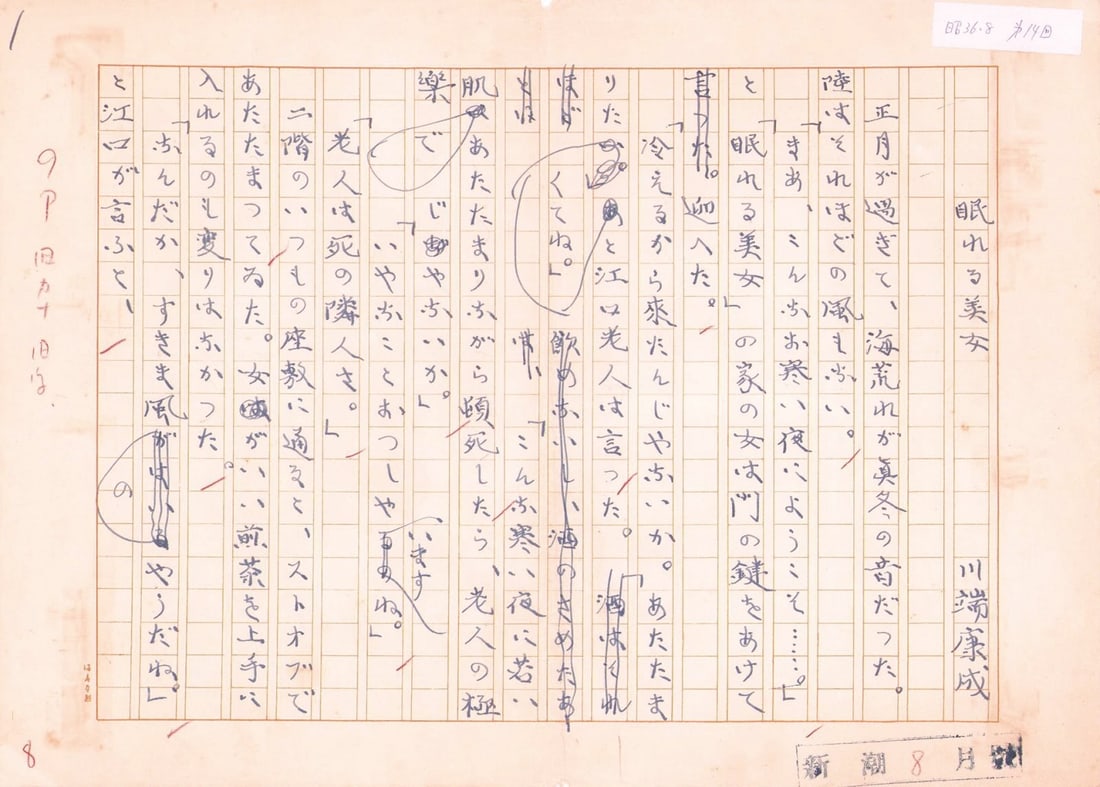 1
昭36.8 第14回
眠れる美女 川端康成
正月が過ぎて、海荒れが真冬の音だつた。
陸はそれほどの風もない。
「まあ、こんなお寒い夜にようこそ……。」
と「眠れる美女」の家の女は門の鍵をあけて
迎へた。
「冷えるから來たんじやないか。あたたま
りたくてね。」と江口老人は言つた。
「こんな寒い夜に若い
肌であたたまりながら頓死したら、老人の極
樂じやないか。」
「いやなことおつしやいますね。」
「老人は死の隣人さ。」
二階のいつもの座敷に通ると、ストオブで
あたたまつてゐた。女がいい煎茶を上手に
入れるのも変りはなかつた。
「なんだか、すきま風のやうだね。」
と江口が言ふと、
9P 旧カナ 旧字.
8
新潮 8月号